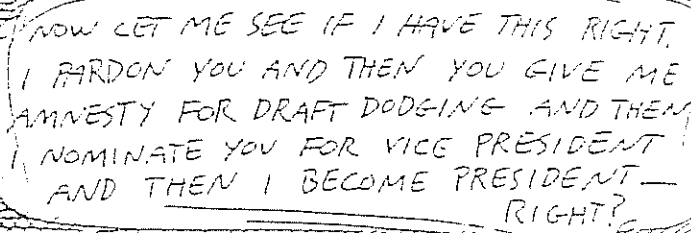 NOW LET ME SEE IF I HAVE THIS RIGHT.
I PARDON YOU AND THEN YOU GIVE ME
AMNESTY FOR DRAFT DODGING AND THEN
I NOMINATE YOU FOR VICE PRESIDENT
AND THEN I BECOME PRESIDENT—
RIGHT?